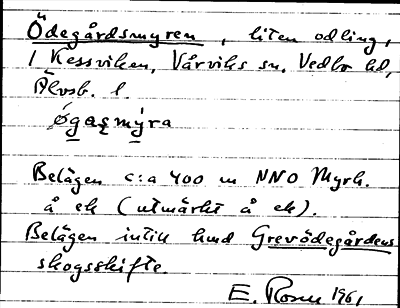 Ödegårdsmyren, liten odling,
i Kessviken, Vårviks sn, Vedbo hd,
Älvsb. l.
øgaşmýra
Belägen c:a 400 m NNO Myrh.
å ek (utmärkt å ek).
Belägen intill hmd Grevödegårdens
skogsskifte.
E. Rosén 1961